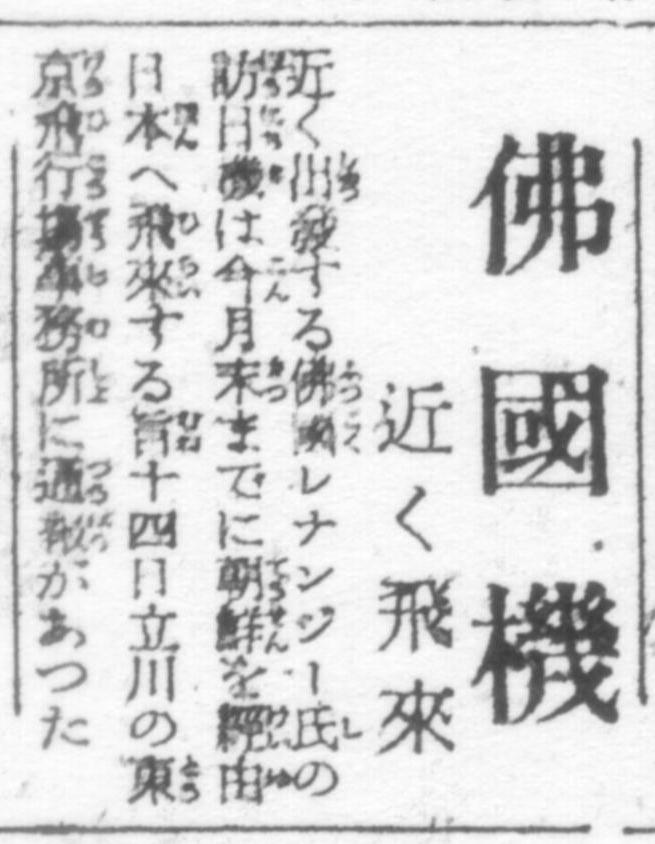 佛國機
近く飛來
近く出發する佛國レナンジー氏の
訪日機は今月末までに朝鮮を經由
日本へ飛來する旨十四日立川の東
京飛行場事務所に通報があつた